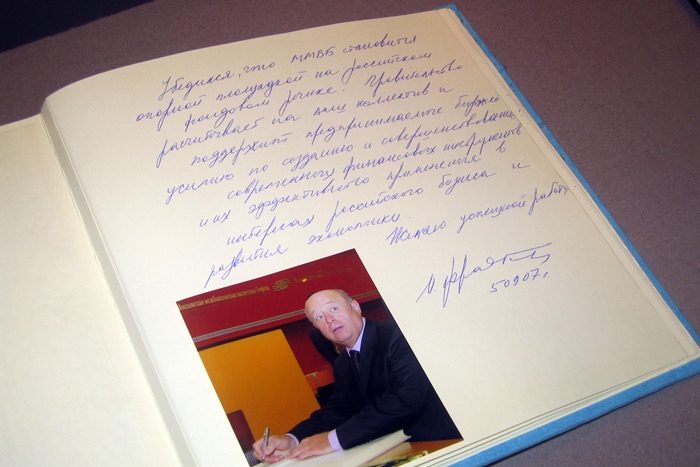 Убедился, что ММВБ становится
опорной площадкой на российском
фондовом рынке. Правительство
расчитывает на ваш коллектив и
поддержит предпринимаемые биржей
усилию по созданию и совершенствованию
современных финансовых инструментов
и их эффективного применения в
интересах российского бизнеса и
развития экономики.
Желаю успешной работы.
М. Фрадков
50907г.
Московская межбанковская валютная биржа